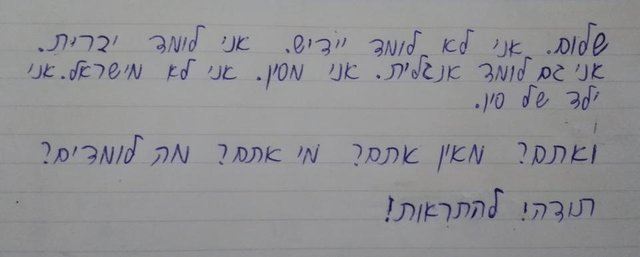 שלום. אני לא לומד יידיש. אני לומד יברית.
אני גם לומד אנגלית. אני מסין. אני לא מישראל. אני
ילד של סין.
ואתם? מאין אתם? מי אתם? מה לומדים?
תודה! להתראות!